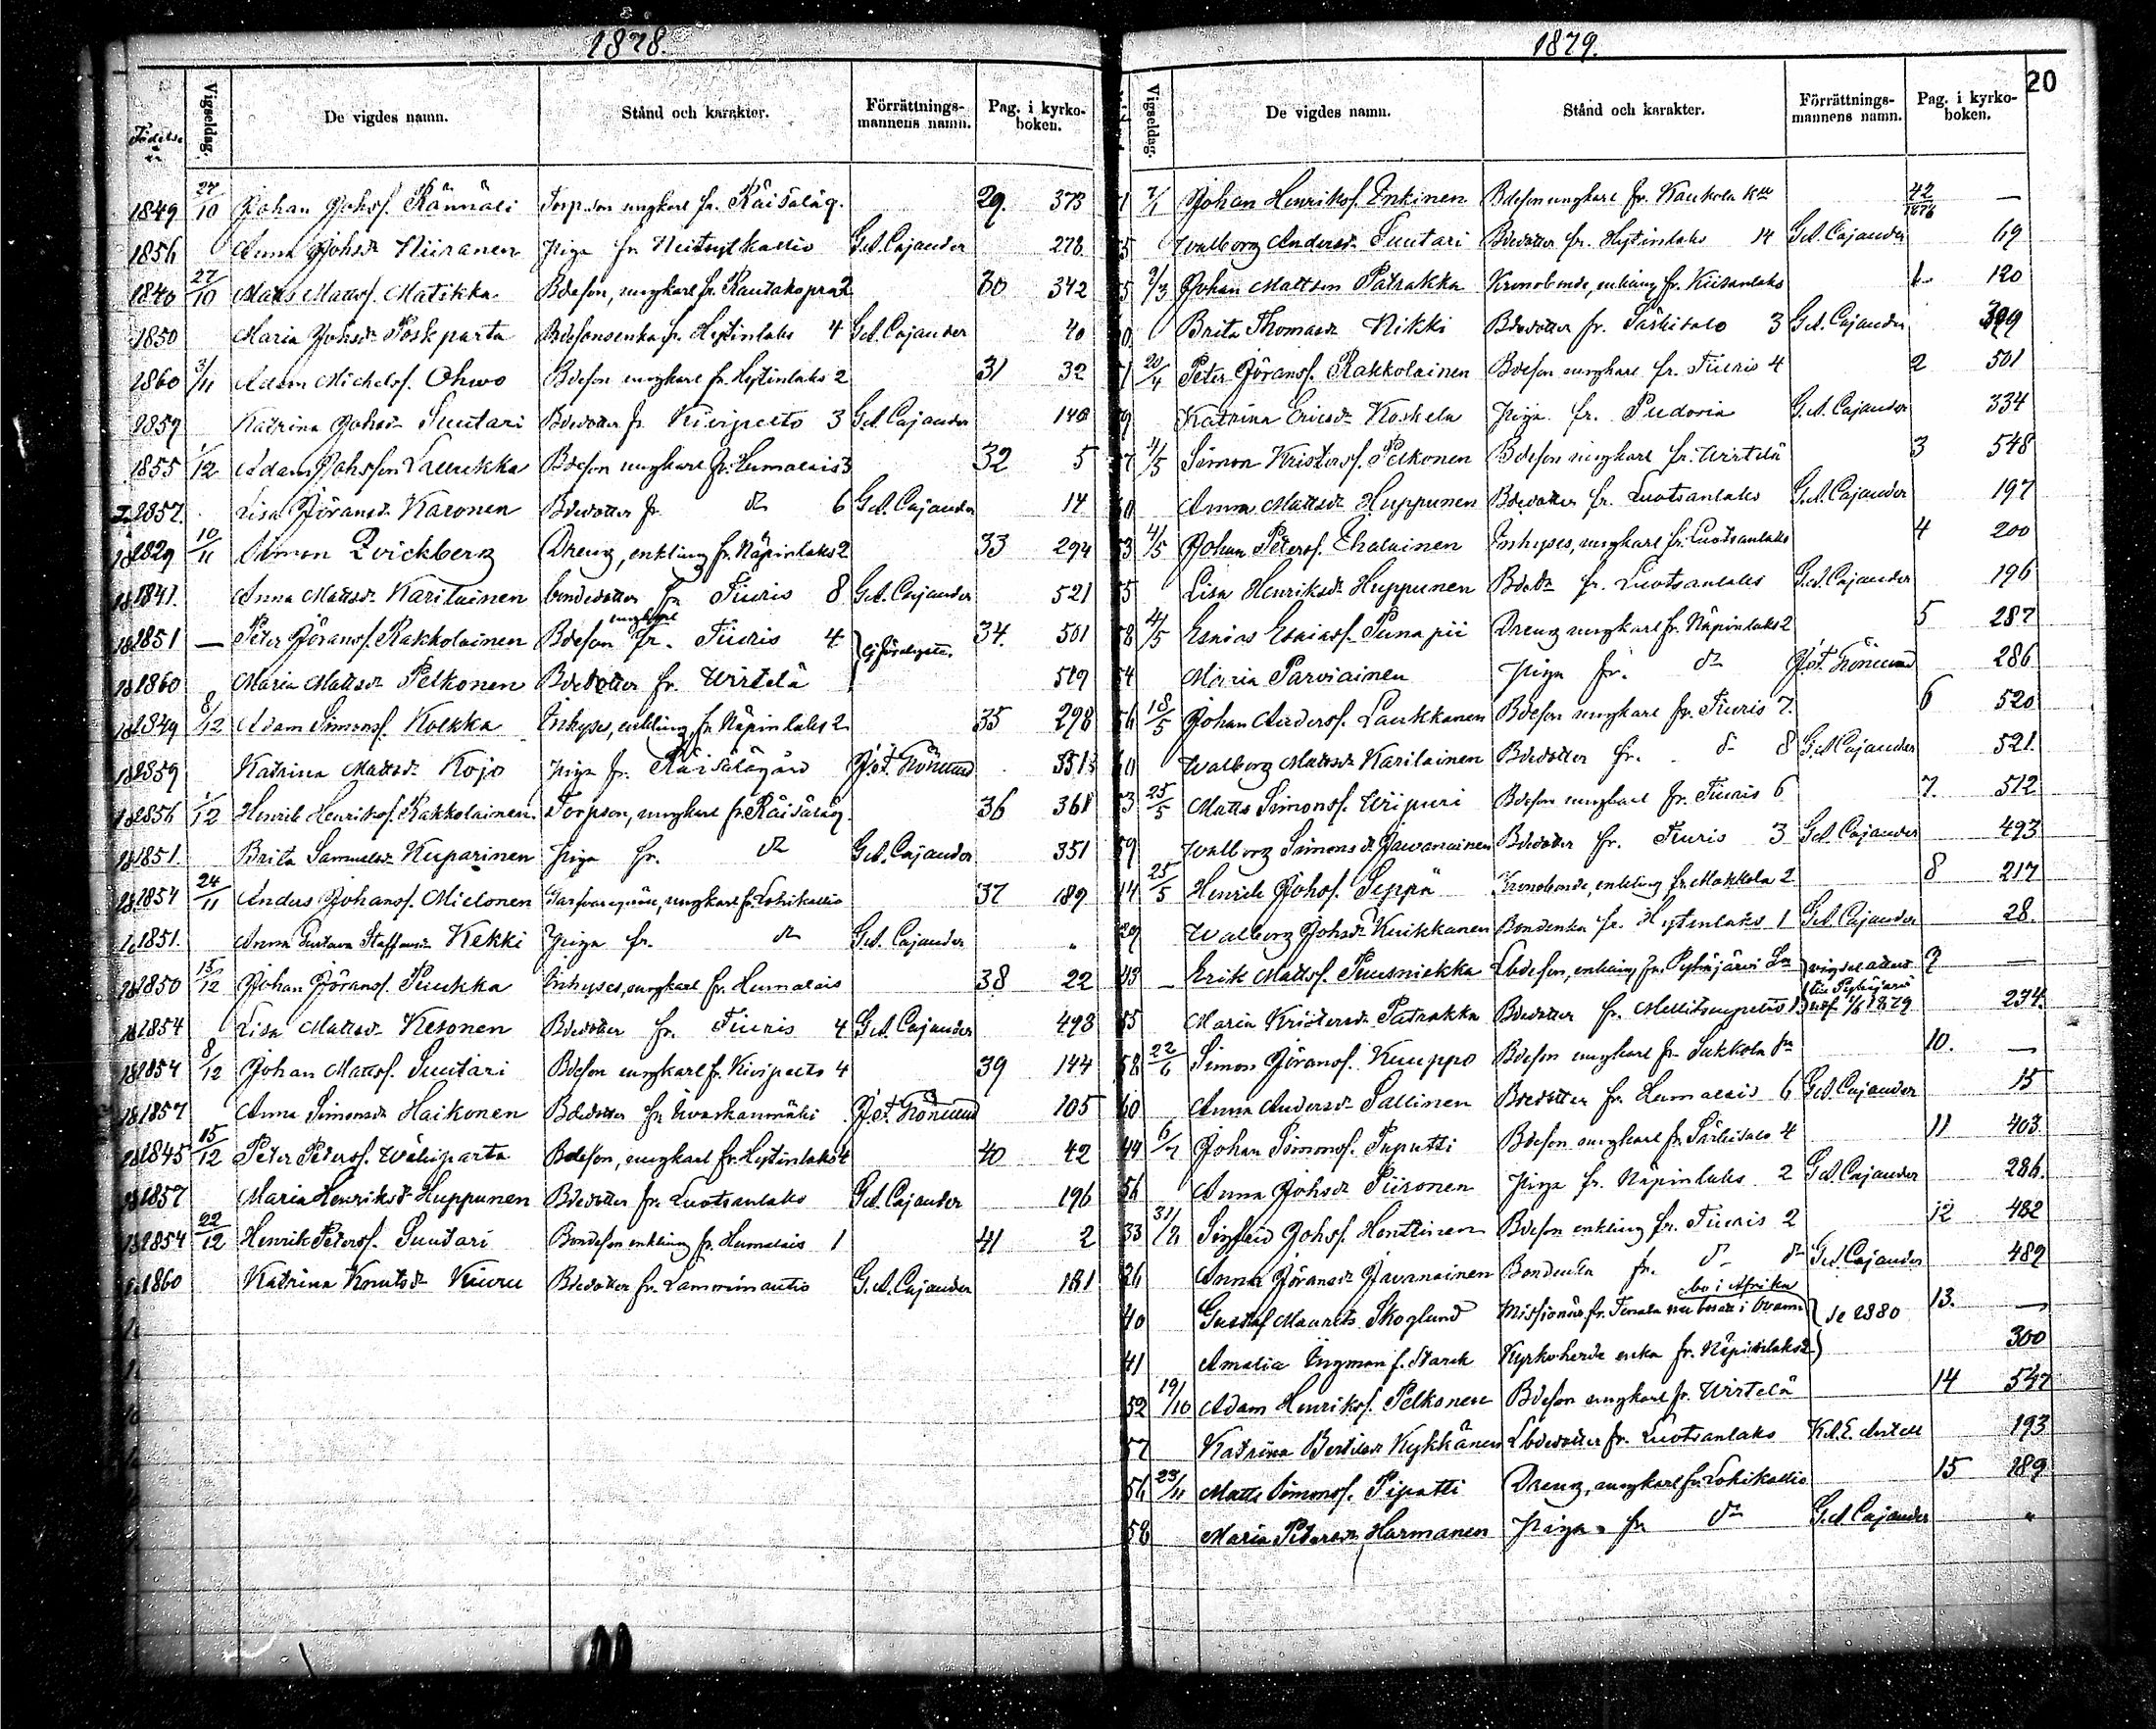 1878.
Födelse år
Vigseldag.
De vigdes namn.
Stånd och karakter.
Förrättningsmannens namn.
Pag. i kyrkoboken.
1849 27/10 Johan Johsf. Rännäli Torp.son ungkarl fr. Räisäläg. 29. 373
1856 Anna Johsdr Niiranen Piga fr G.A. Cajander 278
1840 27/10 Matts Mattsf. Matikka Bdeson, ungkarl fr. 2 30 342
1850 Maria Johsdr Poskparta Bdesonsenka fr. Hytinlaks 4 G.A. Cajander 40
1860 3/11 Adam Michelsf. Ohwo Bdeson ungkarl fr. Hytinlaks 2 31 32
1859 Katrina Johsdr Suutari Bdedotter fr Kivipelto 3 G.A. Cajander 140
1855 1/12 Adam Johsson Laurikka Bdeson ungkarl fr. Humalais 3 32 5
1857. Lisa Göransdr Karonen Bdedotter fr dr 6 G.A. Cajander 14
1829 10/11 Simon Qvickberg Dreng, enkling fr. Näpinlaks 2 33 294
1841. Anna Mattsdr Karilainen bondedotter fr Tiuris 8 G.A. Cajander 521
1851 — Peter Göransf. Rakkolainen Bdeson ungkarl fr. Tiuris 4 34. 501
1860 Maria Mattsdr Pelkonen Bdedotter fr. Wirtelä 549
1849 8/12 Adam Simonsf. Kolkka Inhyses, enkling fr. Näpinlaks 2 35 298
1859 Katrina Mattsdr Kojo Piga fr. Räisälägård 351
1856 1/12 Henrik Henriksf. Rakkolainen. Torpson, ungkarl fr. Räisäläg 36 361
1851. Brita Samuelsdr Kuparinen Piga fr. dr G.A. Cajander 351
1854 24/11 Anders Johansf. Mielonen ungkarl fr. Lohikallio 37 189
1851. Anna Gustava Staffansdr Kekki Piga fr. dr G.A. Cajander "
1850 15/12 Johan Göransf. Puukka Inhyses, ungkarl fr. Humalais 38 22
1854 Lisa Mattsdr Kesonen Bdedotter fr. Tiuris 4 G.A. Cajander 498
1854 8/12 Johan Mattsf. Suutari Bdeson ungkarl fr. Kivipelto 4 39 144
1857 Anna Simonsdr Haikonen Bdedotter fr Ivaskanmäki 105
1845 15/12 Peter Petersf. Wäliparta Bdeson, ungkarl fr. Hytinlaks 4 40 42
1857 Maria Henriksdr Huppunen Bdedotter fr. Luotsanlaks G.A. Cajander 196
1854 22/12 Henrik Petersf. Suutari Bondeson enkling fr. Humalais 1 41 2
1860 Katrina Knutsdr Kiuru Bdedotter fr. Lamminautio G.A. Cajander 181
1879.
20
Vigseldag.
De vigdes namn.
Stånd och karakter.
Förrättningsmannens namn.
Pag. i kyrkoboken.
7/1 Johan Henriksf. Inkinen Bdeson ungkarl fr. Kaukola 42/1878 —
Walborg Andersdr Suutari Bdedotter fr. Hytinlaks 14 G.A. Cajander 69
9/3 Johan Mattson Patrakka Kronobonde, enkling fr. Kiisanlaks 1 120
Brita Thomasdr Nikki Bdedotter fr. Särkisalo 3 G.A. Cajander 399
20/4 Peter Göransf. Rakkolainen Bdeson ungkarl fr. Tiuris 4 2 501
Katrina Ericsdr Koskela Piga fr. Pudoria G.A. Cajander 334
4/5 Simon Kristersf. Pelkonen Bdeson ungkarl fr. Wirtelä 3 548
Anna Mattsdr Huppunen Bdedotter fr. Luotsanlaks G.A. Cajander 197
53 4/5 Johan Petersf. Ihalainen Inhyses, ungkarl fr. Luotsanlaks 4 200
55 Lisa Henriksdr Huppunen Bdedr fr. Luotsanlaks G.A. Cajander 196
58 4/5 Esaias Esaiasf. Punapii Dreng ungkarl fr. Näpinlaks 2 5 287
54 Maria Parviainen Piga fr. dr 286
56 18/5 Johan Andersf. Laukkanen Bdeson ungkarl fr. Tiuris 7. 6 520
Walborg Mattsdr Karilainen Bdedotter fr. dr 8 G.A. Cajander 521.
53 25/5 Matts Simonsf. Wiipuri Bdeson ungkarl fr. Tiuris 6 7. 512
59 Walborg Simonsdr Jawanainen Bdedotter fr. Tiuris 3 G.A. Cajander 493
14 25/5 Henrik Johsf. Seppä Kronobonde, enkling fr. Makkola 2 8 217
29 Walborg Johsdr Kuikkanen Bondenka fr. Hytinlaks 1 G.A. Cajander 28.
— Erik Mattsf. Puusniekka Lbdeson, enkling fr. Pyhäjärvi vigselattest till Pyhäjärvi 1879 9 —
55 Maria Kristersdr Patrakka Bdedotter fr. 234.
58 22/6 Simon Göransf. Kuuppo Bdeson ungkarl fr. Sakkola 10. —
60 Anna Andersdr Sallinen Bdedotter fr. Humalais 6 G.A. Cajander 15
49 6/7 Johan Simonsf. Puputti Bdeson ungkarl fr. Särkisalo 4 11 403.
56 Anna Johsdr Piironen Piga fr. Näpinlaks 2 G.A. Cajander 286.
33 31/8 Sigfrid Johsf. Henttinen Bdeson enkling fr. Tiuris 2 12 482
26 Anna Göransdr Javanainen Bondenka fr. dr dr G.A. Cajander 489
40 Gustaf Maurits Skoglund Missionär fr. Tenala bo i Afrika 1880 13. —
41 Amalia Ingman f. Starck Kyrkoherde enka fr. Näpinlaks 2 300
52 19/10 Adam Henriksf. Pelkonen Bdeson ungkarl fr. Wirtelä 14 547
57 Katrina Bertilsdr Kykkänen Lbdedotter fr. Luotsanlaks K.A.E. Antell 193
56 23/11 Matts Simonsf. Piipatti Dreng, ungkarl fr. Lohikallio 15 189
58 Maria Petersdr Harmanen Piga fr dr G.A. Cajander "